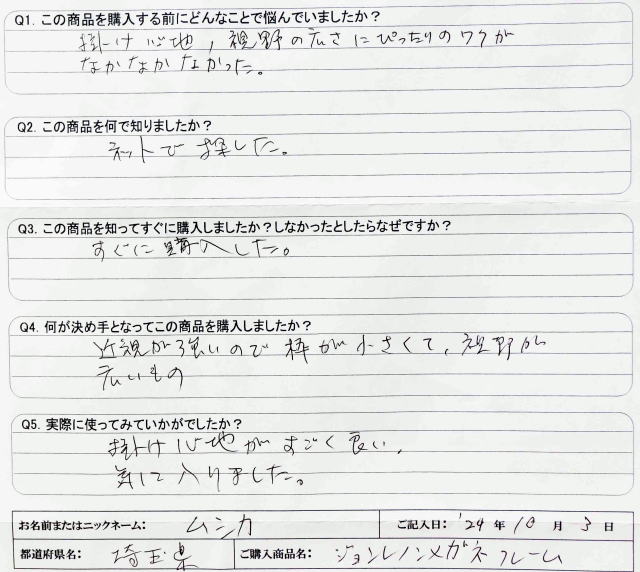 Q1. この商品を購入する前にどんなことで悩んでいましたか？
掛け心地，視野の広さにぴったりのワクが
なかなかなかった。
Q2. この商品を何で知りましたか？
ネットで探した。
Q3. この商品を知ってすぐに購入しましたか？しなかったとしたらなぜですか？
すぐに購入した。
Q4. 何が決め手となってこの商品を購入しましたか？
近視が強いので枠が小さくて，視野が
広いもの
Q5. 実際に使ってみていかがでしたか？
掛け心地がすごく良い，
気に入りました。
お名前またはニックネーム： ムシカ ご記入日： '24 年 10 月 3 日
都道府県名： 埼玉県 ご購入商品名： ジョンレノンメガネフレーム